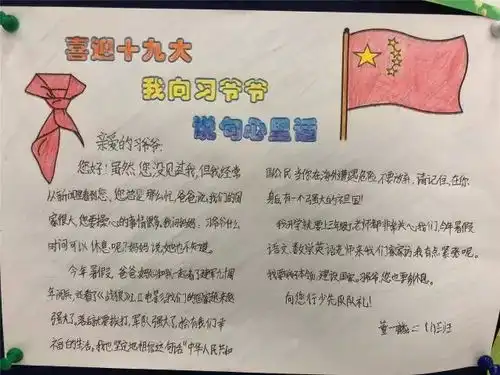 喜迎十九大
我向习爷爷
说句心里话
亲爱的习爷爷:
您好!虽然,您没见过我,但我经常
从新闻里看到您,您总是那么忙,爸爸说,我们的国
家很大,您要操心的事情很多,我问妈妈:习爷爷什么
时间可以休息呢?妈妈说,她也不知道。
今年暑假,爸爸妈妈和我一起看了建军九十周
年阅兵,还看了《战狼2》,电影,我们的国家越来越
强大了,落后就要挨打,军队强大了,给有我们幸
福的生活。我也坚定地相信这句话"中华人民共和
国公民当你在海外遭遇危险,不要放弃,请记住,在你
身后有一个强大的祖国!
我开学就要上三年级了,老师都非常关心我们,今年暑假
语文、数学、英语老师来我们家家访,我有点紧张呢。
我要学好本领,建设国家。习爷爷,您也要多休息。
向您行少先队队礼!
二(1)班